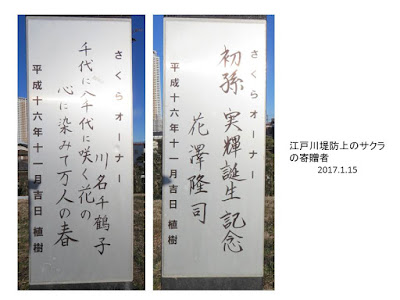 さくらオーナー
川名千鶴子
千代に八千代に咲く花の
心に染みて万人の春
平成十六年十一月吉日 植樹
さくらオーナー
初孫 実輝誕生記念
花澤隆司
平成十六年十一月吉日 植樹
江戸川堤防上のサクラ
の寄贈者
2017.1.15